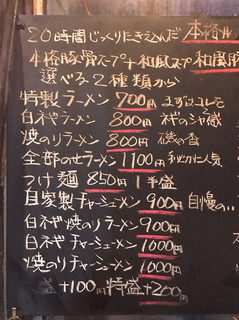 20時間じっくりたきこんだ 本格
本格豚骨スープ+和風スープ 和風豚
選べる2種類から
特製ラーメン 700円 まずはコレ
白ネギラーメン 800円 ネギのシャキ感
焼のりラーメン 800円 磯の香
全部のせラーメン 1100円 ひそかに人気
つけ麺 850円 1半盛
自家製チャーシューメン 900円 自慢の
白ネギ焼のりラーメン 900円
白ネギチャーシューメン 1000円
焼のりチャーシューメン 1000円
盛+100円 特盛+200円